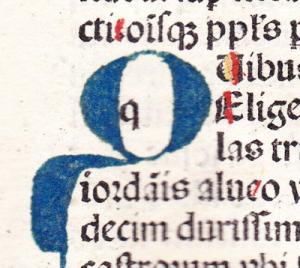 ctiōīsqꝫ ppłs p
q Uibus
Elige
las tr
iordāis alueo v
decim durissim
castrorum vbi